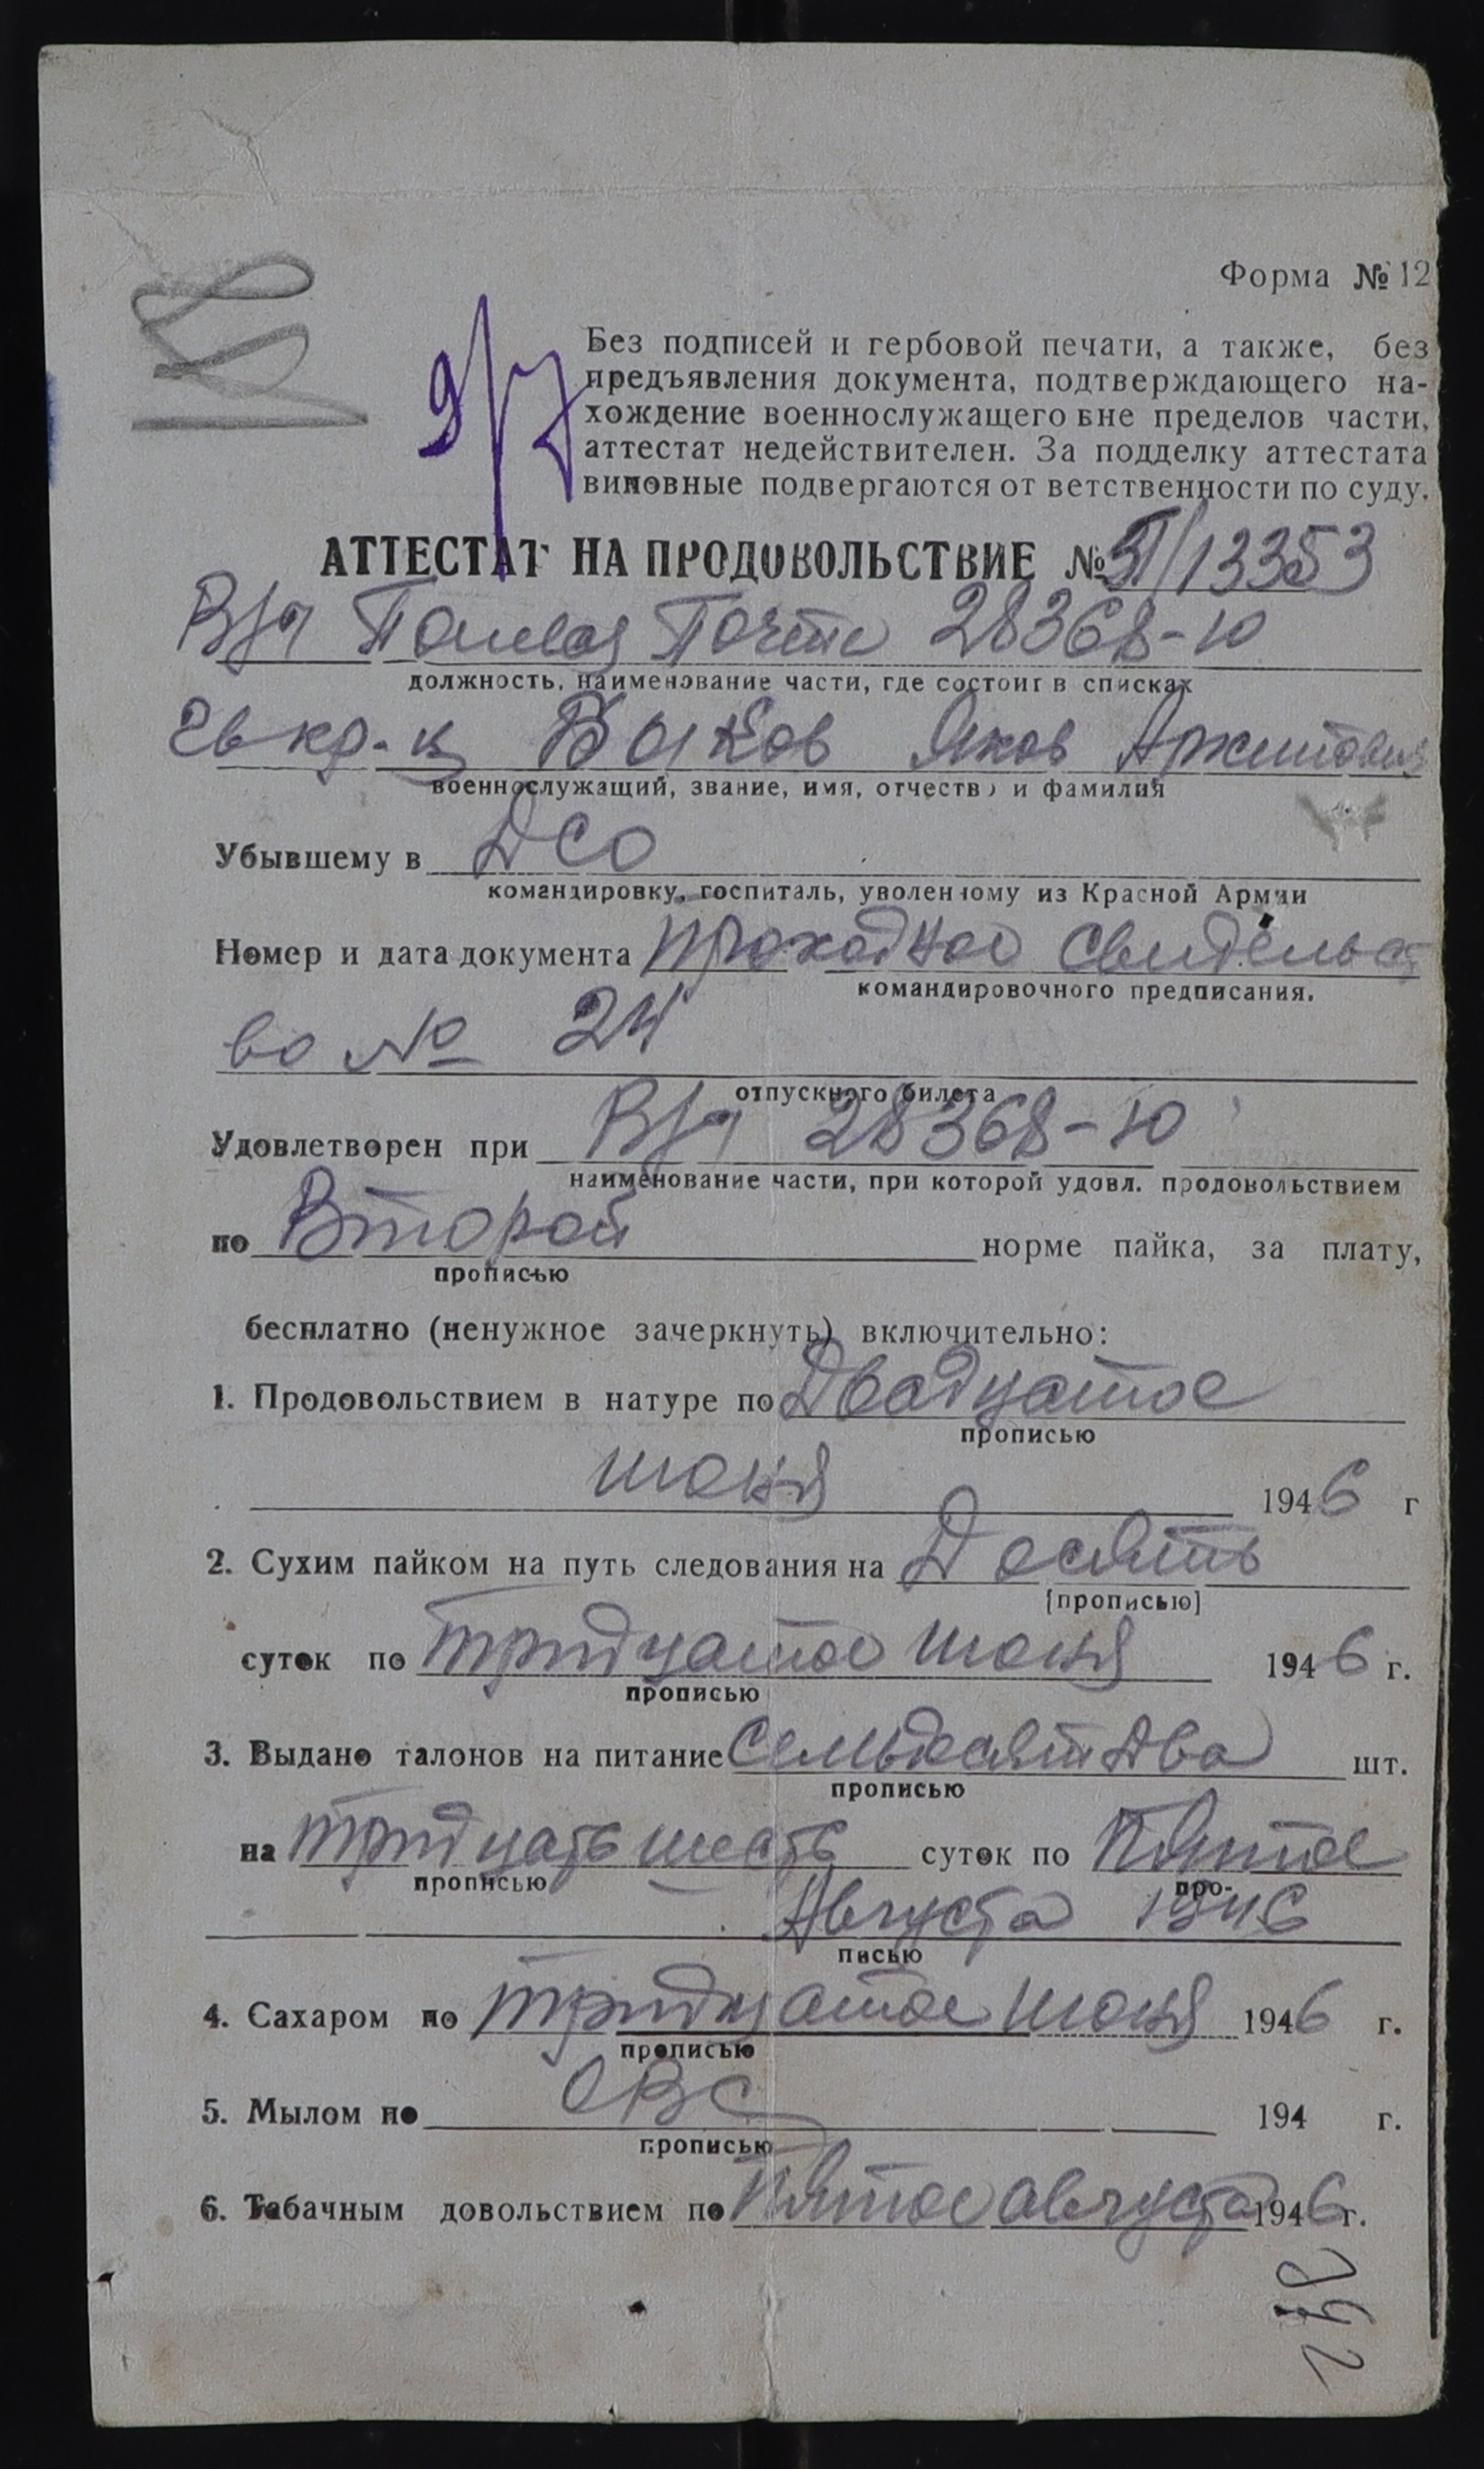 Форма № 12
9/7
Без подписей и гербовой печати, а также, без
предъявления документа, подтверждающего на-
хождение военнослужащего вне пределов части,
аттестат недействителен. За подделку аттестата
виновные подвергаются от ветственности по суду.
АТТЕСТАТ НА ПРОДОВОЛЬСТВИЕ № /13353
В/ч Полевая Почта 28368-Ю
должность, наименование части, где состоит в списках
Быков Яков
военнослужащий, звание, имя, отчество и фамилия
Убывшему в ДСО
командировку, госпиталь, уволенному из Красной Армии
Номер и дата документа проходное свидельст
командировочного предписания.
во № 24
отпускного билета
Удовлетворен при В/ч 28368-Ю
наименование части, при которой удовл. продовольствием
по Второй норме пайка, за плату,
прописью
бесплатно (ненужное зачеркнуть) включительно:
1. Продовольствием в натуре по Двадцатое
прописью
июня 1946 г
2. Сухим пайком на путь следования на Десять
[прописью]
суток по тридцатое июня 1946 г.
прописью
3. Выдано талонов на питание Семьдесят два шт.
прописью
на тридцать шесть суток по Пятое
прописью про-
Августа 1946
писью
4. Сахаром по тридцатое июня 1946 г.
прописью
5. Мылом по ОВС 194 г.
прописью
6. Табачным довольствием по Пятое августа 1946 г.